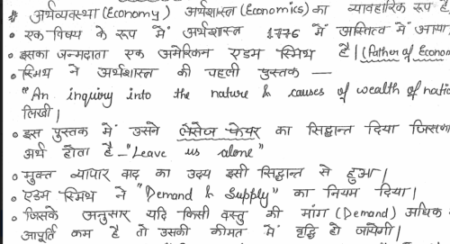 # अर्थव्यवस्था (Economy) अर्थशास्त्र (Economics) का व्यावहारिक रूप है
• एक विषय के रूप में अर्थशास्त्र 1776 में अस्तित्व में आया
• इसका जन्मदाता एक अमेरिकन एडम स्मिथ है। (Father of Econom
• स्मिथ ने अर्थशास्त्र की पहली पुस्तक —
"An inquiry into the nature & causes of wealth of natio
लिखी।
• इस पुस्तक में उसने लेसेज फेयर का सिद्धान्त दिया जिसका
अर्थ होता है - "Leave us alone"
• मुक्त व्यापार वाद का उदय इसी सिद्धान्त से हुआ।
• एडम स्मिथ ने "Demand & Supply" का नियम दिया।
• जिसके अनुसार यदि किसी वस्तु की मांग (Demand) अधिक
आपूर्ति कम है तो उसकी कीमत में वृद्धि हो जायेगी।